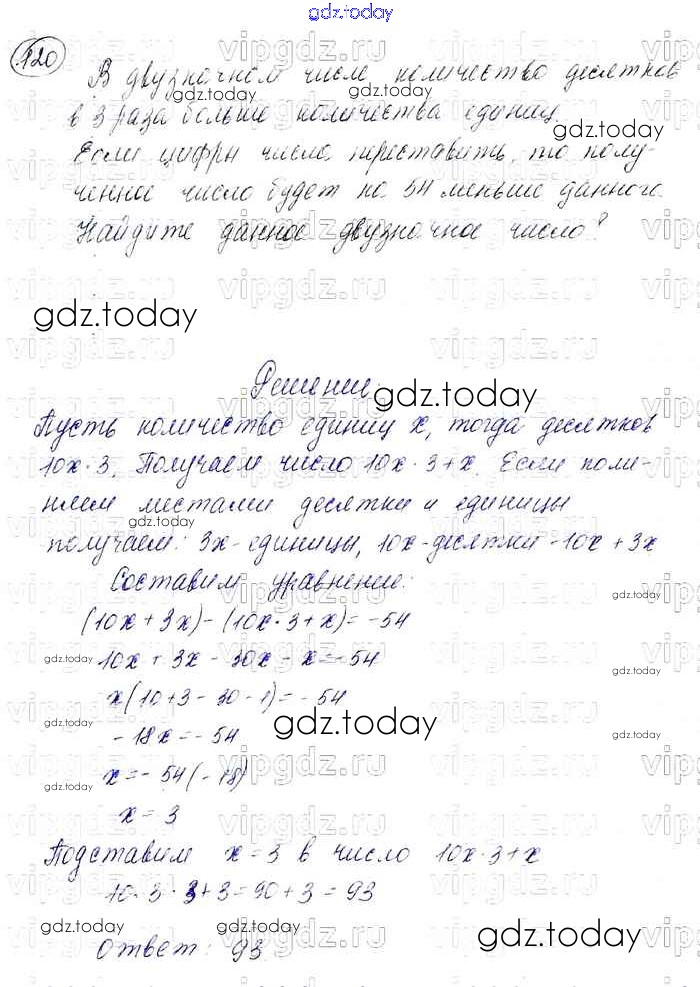 gdz.today
120
В двузначном числе количество десятков
в 3 раза больше количества единиц.
Если цифры числа переставить, то полу-
ченное число будет на 54 меньше данного.
Найдите данное двузначное число?
gdz.today
Решение:
Пусть количество единиц x, тогда десятков
10x·3. Получаем число 10x·3+x. Если поме-
няем местами десятки и единицы
получаем: 3x-единицы, 10x-десятки -10x+3x
Составим уравнение:
(10x+3x)-(10x·3+x)=-54
10x+3x-30x-x=-54
x(10+3-30-1)=-54
-18x=-54
x=-54(-18)
x=3
Подставим x=3 в число 10x·3+x
10·3·3+3=90+3=93
Ответ: 93
gdz.today
vipgdz.ru